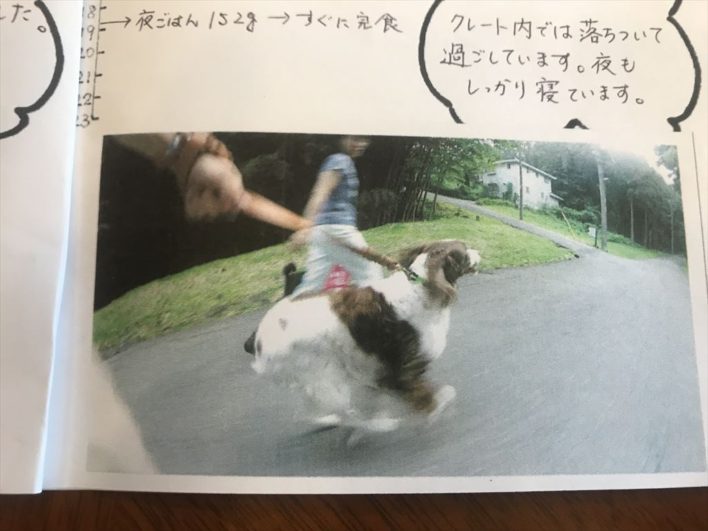 した。
18
19
20
21
22
23
→夜ごはん 152g →すぐに完食
クレート内では落ちついて
過ごしています。夜も
しっかり寝ています。